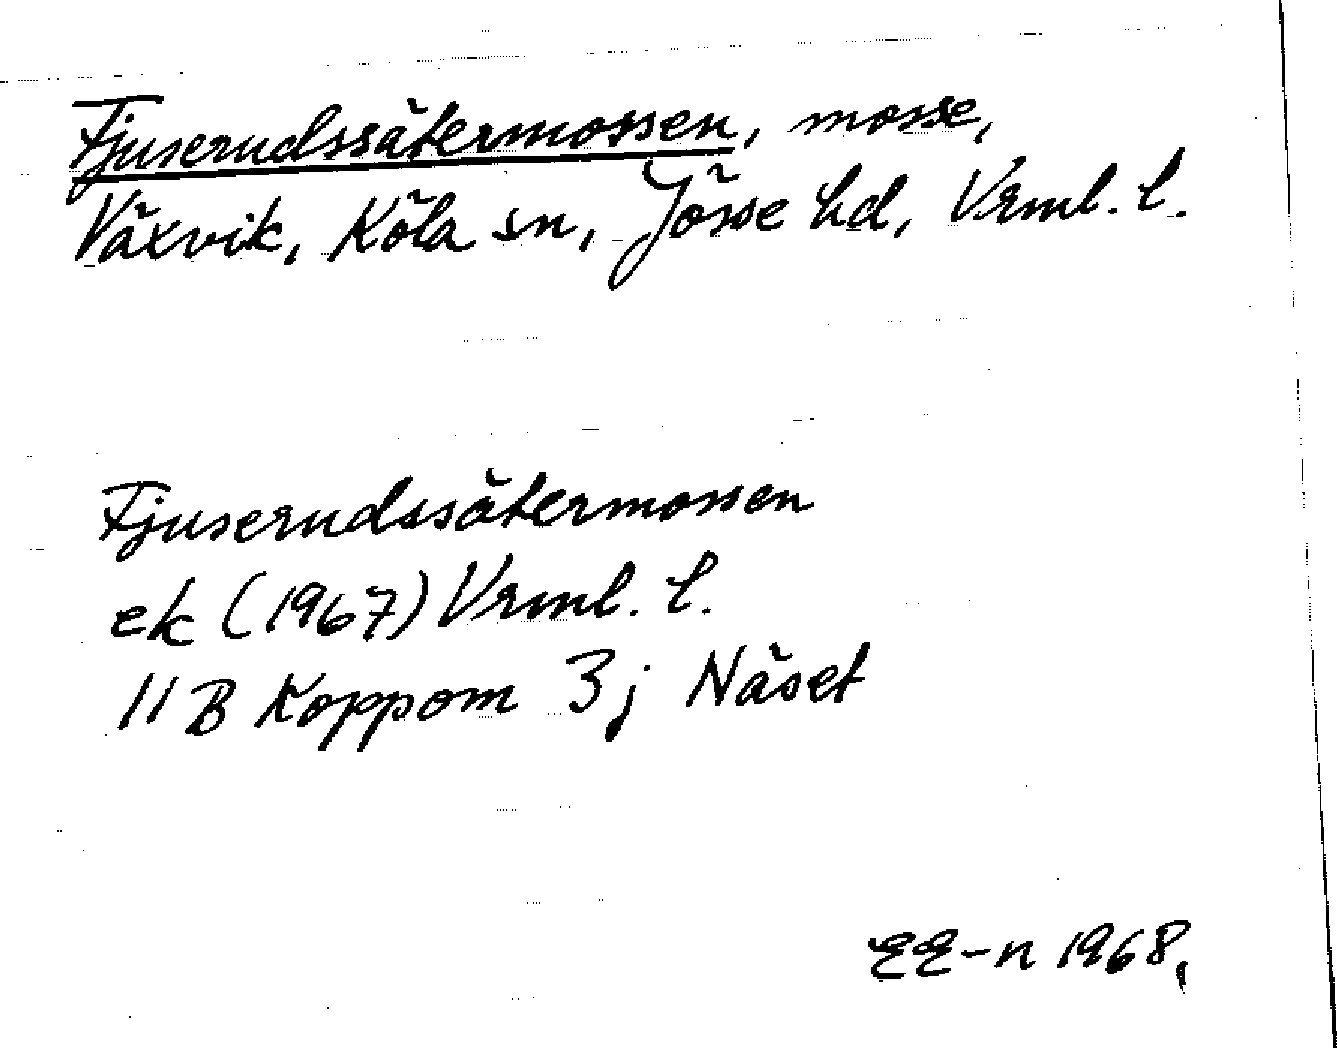 Fjuserudssätermossen, mosse,
Växvik, Köla sn, Jösse hd, Vrml. l.
Fjuserudssätermossen
ek (1967) Vrml. l.
11 B Koppom 3j Näset
EE-n 1968,